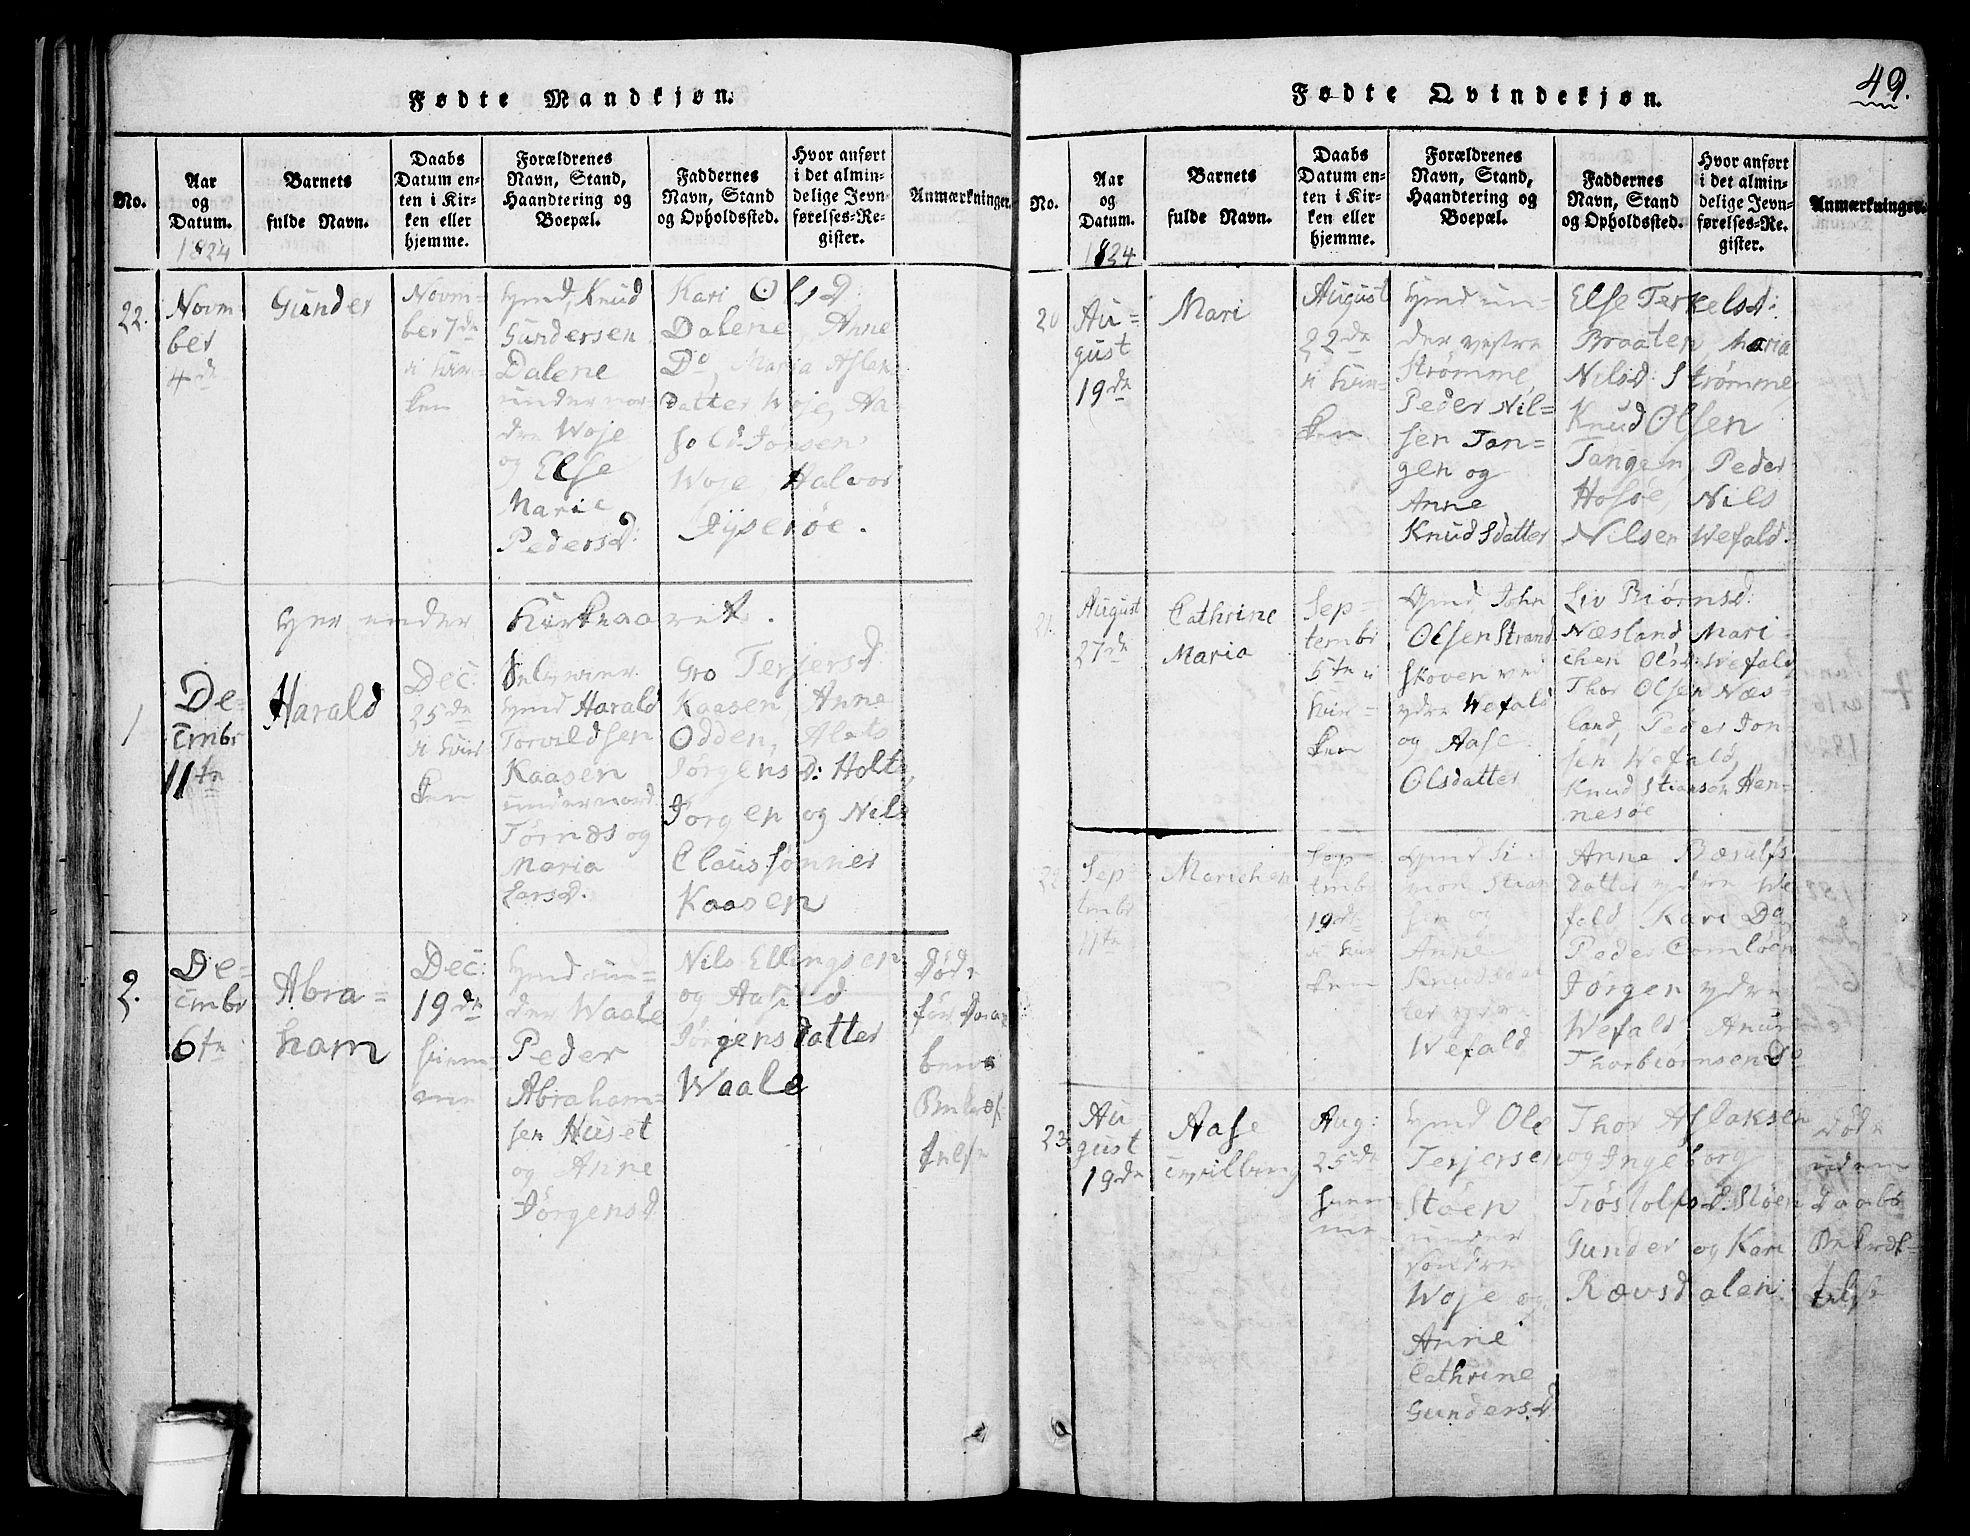 Fødte Mandkjøn.
No.
Aar
og
Datum.
1824
Barnets
fulde Navn.
Daabs
Datum en-
ten i Kir-
ken eller
hjemme.
Forældrenes
Navn, Stand,
Haandtering og
Boepæl.
Faddernes
Navn, Stand
og Opholdssted.
Hvor anført
i det almin-
delige Jevn-
førelses-Re-
gister.
Anmærkninger.
22.
Novm
ber
4de
Gunder
Novm-
ber 7de
i Kir-
ken
Knud
Gundersen
Dalene
under nor-
dre Woje
og Else
Marie
Pedersd:
Kari Olsd:
Dalene, Anne
Do, Maria Aslak
Datter Woje, Aa-
Jørsen
Woje, Halvor
Dyserøe.
Her ender Kirkeaaret.
1
De-
cmbr
11te
Harald
Dec:
25de
i Kir
ken
Harald
Torvildsen
Kaasen
under nord
Tørnes og
Maria
Larsd:
Gro Terjersd
Kaasen, Anne
Odden, Alets
Jørgensd: Holte,
Jørgen og Nils
Claussønner
Kaasen
2.
De-
cmbr
6te
Abra-
ham
Dec:
19de
hiem-
me
un-
der Waale
Peder
Abraham-
sen Huset
og Anne
Jørgensd
Nils Ellingsen
og Aasild
Jørgensdatter
Waale
Døde
før Daa-
bens
Bekræf-
telse
Fødte Qvindekjøn.
49.
No.
Aar
og
Datum.
1824
Barnets
fulde Navn.
Daabs
Datum en-
ten i Kir-
ken eller
hjemme.
Forældrenes
Navn, Stand,
Haandtering og
Boepæl.
Faddernes
Navn, Stand
og Opholdssted.
Hvor anført
i det almin-
delige Jevn-
førelses-Re-
gister.
Anmærkninger.
20
Au-
gust
19de
Mari
August
22de
i Kir-
ken
un-
der vestre
Strømme,
Peder Nil-
sen Tan-
gen og
Anne
Knudsdatter
Else Terkelsd:
Braaten, Maria
Nilsd: Strømme,
Knud Olsen
Tangen, Peder
Hosøe, Nils
Nilsen Wefald.
21.
August
27de
Cathrine
Maria
Sep-
tembr
5te i
Kir-
ken
John
Olsen Strand
Skoven ved
ydre Wefald
og Aase
Olsdatter
Liv Biørnsd:
Næsland, Mari-
chen Olsd: Wefald
Thor Olsen Næs-
land, Peder Jon-
sen Wefald,
Knud Stiansen Hen-
nesøe
22
Sep-
tmbr
11te
Marichen
Sep-
tmbr
19de
i Kir
ken
Si-
mon Stian
sen og
Anne
Knudsdat
ter ydre
Wefald
Anne Bærulfs
datter ydre We
fald Kari Do
Peder Comløen
Jørgen ydre
Wefald
Thorbiørnsen Do
23.
Au-
gust
19de
Aase
Aug:
25de
hiem
me
Ole
Terjersen
Støen
under
søndre
Woje og
Anne
Cathrine
Gundersd
Thor Aslaksen
og Ingeborg
Trøstolfsd: Støen
Gunder og Kari
Rævsdalen.
Døde
uden
Daabs
Bekræf-
telse